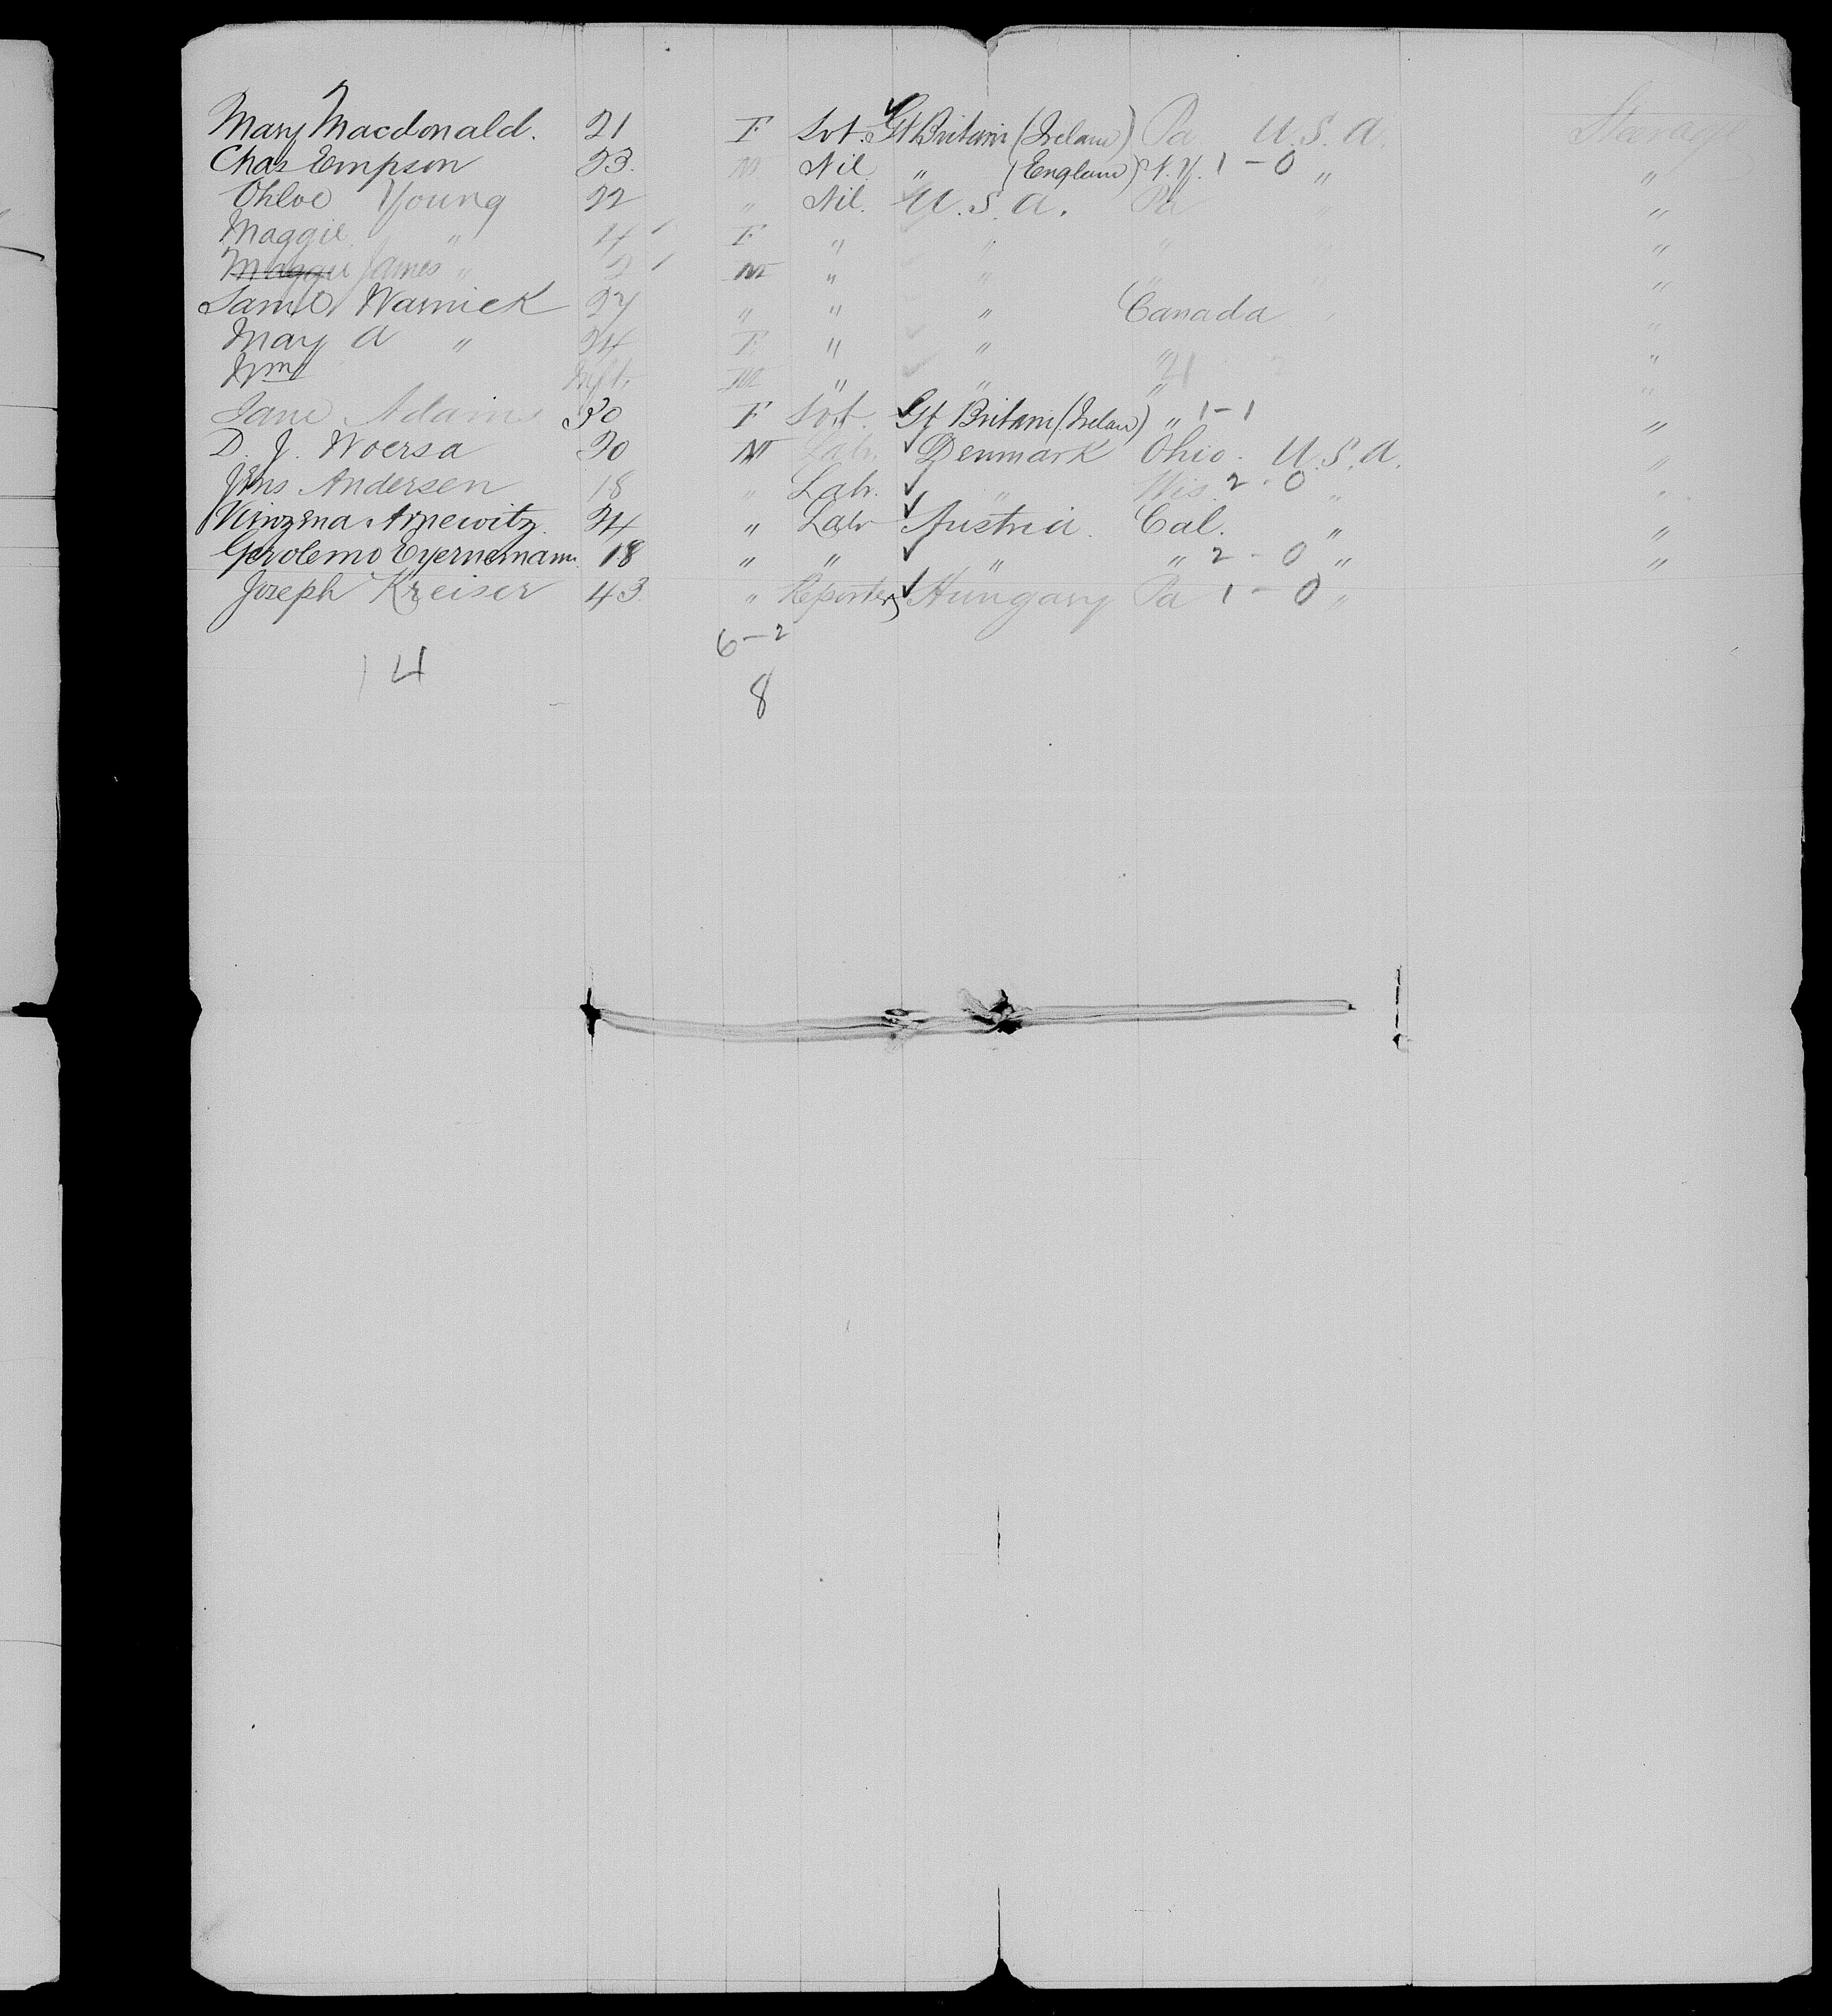 Mary Macdonald. 21 F Svt. Gt Britain (Irelan) Pa U.S.A. Steerage
Chas Empson 23. M Nil " (Englan) N.Y. 1 - 0 " "
Chloe Young 22 " Nil. U.S.A. Pa " "
Maggie " 4 F " " " "
Maggie James " 2 M " " " "
Saml Warnick 27 " " " Canada "
May A " 24 F " " " "
Wm Inft. M " " " "
Jane Adams 30 F Svt. Gt Britain (Irelan) " 1 - 1 "
D. J. Woersa 20 M Labr. Denmark Ohio. U.S.A. "
Jens Andersen 18 " Labr. " Wis. 2 - 0 " "
Vinzena Arnewitz 24 " Labr Austria. Cal. " "
Gerolemo Eyernemann 18 " " " " 2 - 0 " "
Joseph Kreiser 43. " Reporter Hungary Pa 1 - 0 "
6 - 2
14
8